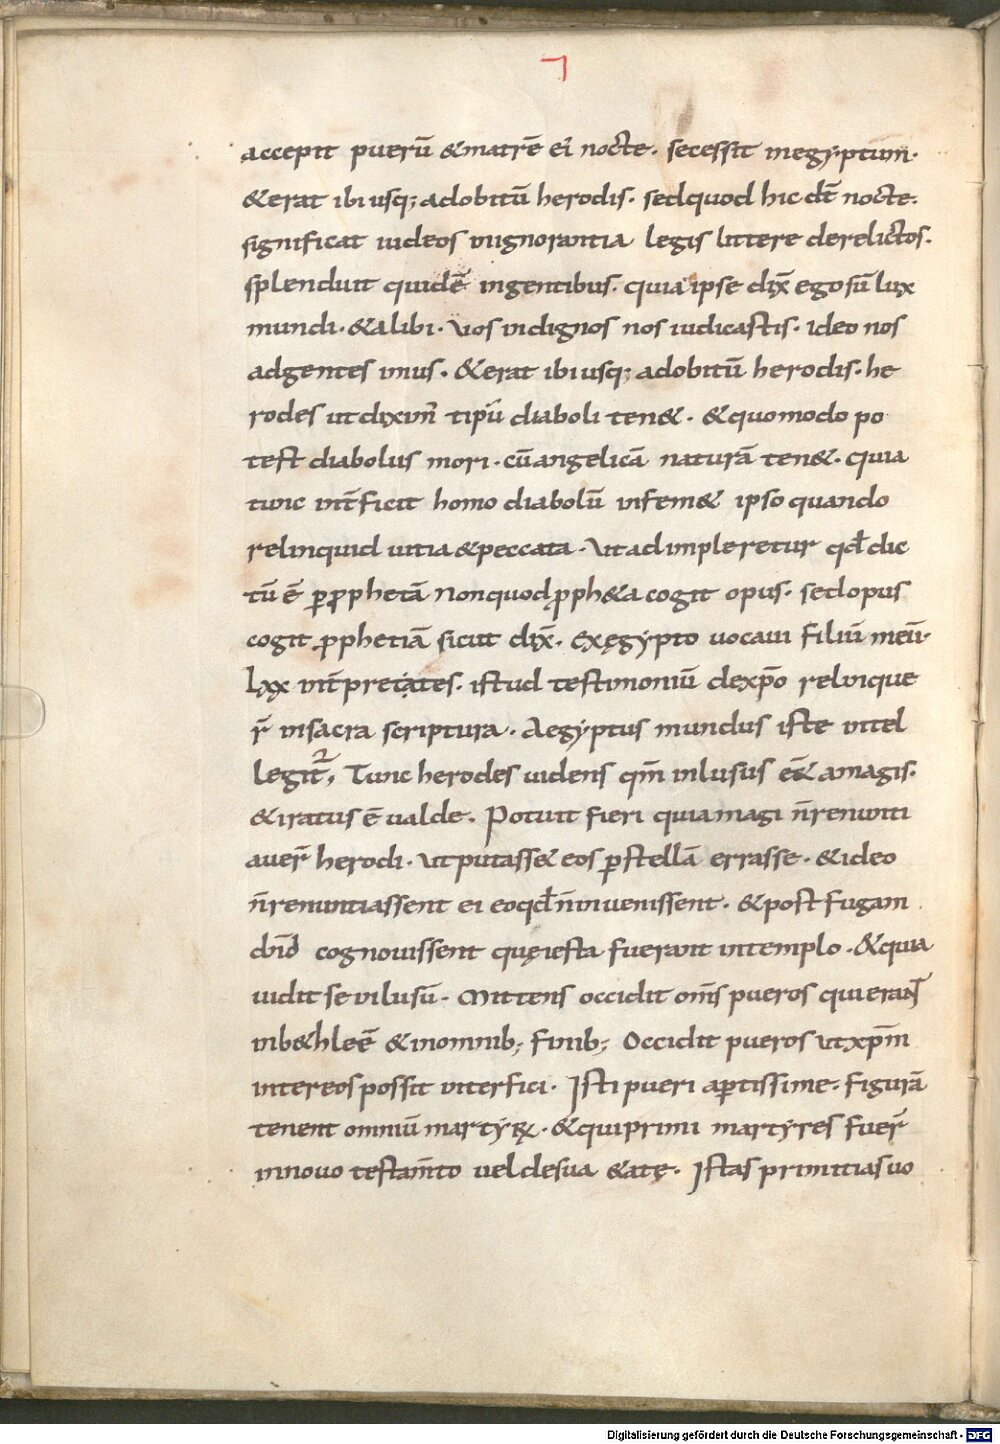 ⁊
accepit puerū & matrē ei' nocte. secessit in egyptum.
& erat ibi usq; ad obitū herodis. sed quod hic dt̄ nocte.
significat iudeos in ignorantia legis littere derelictos.
splenduit quidē in gentibus. quia ipse dix̄ ego sū lux
mundi. & alibi. Vos indignos nos iudicastis. ideo nos
ad gentes imus. & erat ibi usq; ad obitū herodis. he
rodes ut dixim' tipū diaboli ten&. & quomodo po
test diabolus mori. cū angelicā naturā ten&. quia
tunc int̄ficit homo diabolū in sem& ipso quando
relinquid uitia & peccata. Ut adimpleretur qđ dic
tū ē ꝑ ꝓphetā Non quod ꝓph&a cogit opus. sed opus
cogit ꝓphetiā sicut dix̄. Ex ęgypto uocaui filiū meū.
Lxx int̄pretates. istud testimoniū de xp̄o relinque
r̄ in sacra scriptura. Aegyptus mundus iste intel
legit'. Tunc herodes uidens qm̄ inlusus ēē& a magis.
& iratus ē ualde. Potuit fieri quia magi n̄ renunti
auer̄ herodi. ut putass& eos ꝑ stellā errasse. & ideo
n̄ renuntiassent ei eo qđ n̄ inuenissent. & post fugam
dn̄i cognouissent quę iesta fuerant in templo. & quia
uidit se inlusū. Mittens occidit om̄s pueros qui erant
in b&hleē & in omnib; finib; Occidit pueros ut xp̄m
inter eos possit interfici. Isti pueri aꝑtissime. figurā
tenent omniū martyrꝝ. & qui primi martyres fuer̄
in nouo testam̄to uel de sua &atę. Istas primitias uo
Digitalisierung gefördert durch die Deutsche Forschungsgemeinschaft - DFG